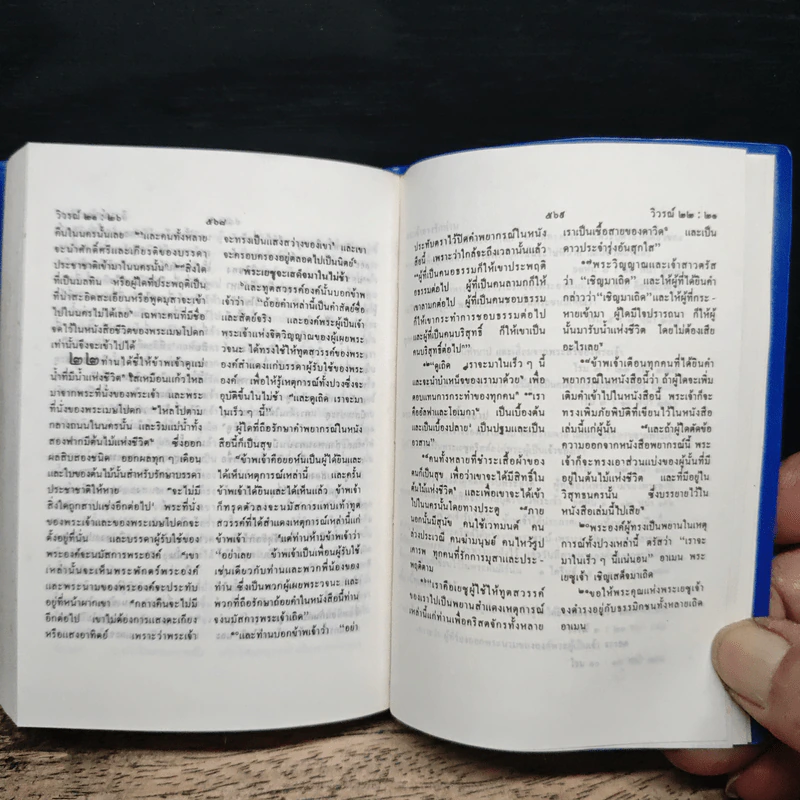 วิวรณ์ ๒๑ : ๒๖
๕๖๘
คืนในนครนั้นเลย ๒๖และคนทั้งหลาย
จะนำศักดิ์ศรีและเกียรติของบรรดา
ประชาชาติเข้ามาในนครนั้น ๒๗สิ่งใด
ที่เป็นมลทิน หรือผู้ใดที่ประพฤติเป็น
ที่น่าสะอิดสะเอียนหรือพูดมุสาจะเข้า
ไปในนครไม่ได้เลย เฉพาะคนที่มีชื่อ
จดไว้ในหนังสือชีวิตของพระเมษโปดก
เท่านั้นจึงจะเข้าไปได้
๒๒ ท่านได้ชี้ให้ข้าพเจ้าดูแม่
น้ำที่มีน้ำแห่งชีวิต ใสเหมือนแก้วไหล
มาจากพระที่นั่งของพระเจ้า และพระ
ที่นั่งของพระเมษโปดก ๒ไหลไปตาม
กลางถนนในนครนั้น และริมแม่น้ำทั้ง
สองฟากมีต้นไม้แห่งชีวิต ซึ่งออก
ผลสิบสองชนิด ออกผลทุก ๆ เดือน
และใบของต้นไม้นั้นสำหรับรักษาบรรดา
ประชาชาติให้หาย ๓จะไม่มี
สิ่งใดถูกสาปแช่งอีกต่อไป พระที่นั่ง
ของพระเจ้าและของพระเมษโปดกจะ
ตั้งอยู่ที่นั่น และบรรดาผู้รับใช้ของ
พระองค์จะนมัสการพระองค์ ๔เขา
เหล่านั้นจะเห็นพระพักตร์พระองค์
และพระนามของพระองค์จะประทับ
อยู่ที่หน้าผากเขา ๕กลางคืนจะไม่มี
อีกต่อไป เขาไม่ต้องการแสงตะเกียง
หรือแสงอาทิตย์ เพราะว่าพระเจ้า
จะทรงเป็นแสงสว่างของเขา และเขา
จะครอบครองอยู่ตลอดไปเป็นนิตย์
พระเยซูจะเสด็จมาในไม่ช้า
๖และทูตสวรรค์องค์นั้นบอกข้าพ
เจ้าว่า “ถ้อยคำเหล่านี้เป็นคำสัตย์ซื่อ
และสัตย์จริง และองค์พระผู้เป็นเจ้า
พระเจ้าแห่งจิตวิญญาณของผู้เผยพระ
วจนะ ได้ทรงใช้ให้ทูตสวรรค์ของพระ
องค์สำแดงแก่บรรดาผู้รับใช้ของพระ
องค์ เพื่อให้รู้เหตุการณ์ทั้งปวงซึ่งจะ
อุบัติขึ้นในไม่ช้า ๗และดูเถิด เราจะมา
ในเร็ว ๆ นี้”
ผู้ใดที่ถือรักษาคำพยากรณ์ในหนัง
สือนี้ก็เป็นสุข
๘ข้าพเจ้าคือยอห์นที่เป็นผู้ได้ยินและ
ได้เห็นเหตุการณ์เหล่านี้ และครั้น
ข้าพเจ้าได้ยินและได้เห็นแล้ว ข้าพเจ้า
ก็ทรุดตัวลงจะนมัสการแทบเท้าทูต
สวรรค์ที่ได้สำแดงเหตุการณ์เหล่านี้แก่
ข้าพเจ้า ๙แต่ท่านห้ามข้าพเจ้าว่า
“อย่าเลย ข้าพเจ้าเป็นเพื่อนผู้รับใช้
เช่นเดียวกับท่านและพวกพี่น้องของ
ท่าน ซึ่งเป็นพวกผู้เผยพระวจนะ และ
พวกที่ถือรักษาถ้อยคำในหนังสือนี้ท่าน
จงนมัสการพระเจ้าเถิด”
๑๐และท่านบอกข้าพเจ้าว่า “อย่า
๕๖๙
วิวรณ์ ๒๒ : ๒๑
ประทับตราไว้ปิดคำพยากรณ์ในหนัง
สือนี้ เพราะว่าใกล้จะถึงเวลานั้นแล้ว
๑๑ผู้ที่เป็นคนอธรรมก็ให้เขาประพฤติ
อธรรมต่อไป ผู้ที่เป็นคนลามกก็ให้
เขาลามกต่อไป ผู้ที่เป็นคนชอบธรรม
ก็ให้เขากระทำการชอบธรรมต่อไป
และผู้ที่เป็นคนบริสุทธิ์ ก็ให้เขาเป็น
คนบริสุทธิ์ต่อไป”
๑๒“ดูเถิด เราจะมาในเร็ว ๆ นี้
และจะนำบำเหน็จของเรามาด้วย เพื่อ
ตอบแทนการกระทำของทุกคน ๑๓เรา
คืออัลฟาและโอเมกา เป็นเบื้องต้น
และเป็นเบื้องปลาย เป็นปฐมและเป็น
อวสาน”
๑๔คนทั้งหลายที่ชำระเสื้อผ้าของ
ตนก็เป็นสุข เพื่อว่าเขาจะได้มีสิทธิ์ใน
ต้นไม้แห่งชีวิต และเพื่อเขาจะได้เข้า
ไปในนครนั้นโดยทางประตู ๑๕ภาย
นอกนั้นมีสุนัข คนใช้เวทมนต์ คน
ล่วงประเวณี คนฆ่ามนุษย์ คนไหว้รูป
เคารพ ทุกคนที่รักการมุสาและประ-
พฤติตาม
๑๖“เราคือเยซูผู้ใช้ให้ทูตสวรรค์
ของเราไปเป็นพยานสำแดงเหตุการณ์
เหล่านี้แก่ท่านเพื่อคริสตจักรทั้งหลาย
เราเป็นเชื้อสายของดาวิด และเป็น
ดาวประจำรุ่งอันสุกใส”
๑๗พระวิญญาณและเจ้าสาวตรัส
ว่า “เชิญมาเถิด” และให้ผู้ที่ได้ยินคำ
กล่าวว่า “เชิญมาเถิด”และให้ผู้ที่กระ-
หายเข้ามา ผู้ใดมีใจปรารถนา ก็ให้ผู้
นั้นมารับน้ำแห่งชีวิต โดยไม่ต้องเสีย
อะไรเลย
๑๘ข้าพเจ้าเตือนทุกคนที่ได้ยินคำ
พยากรณ์ในหนังสือนี้ว่า ถ้าผู้ใดจะเพิ่ม
เติมคำเข้าไปในหนังสือนี้ พระเจ้าก็จะ
ทรงเพิ่มภัยพิบัติที่เขียนไว้ในหนังสือ
เล่มนี้แก่ผู้นั้น ๑๙และถ้าผู้ใดตัดข้อ
ความออกจากหนังสือพยากรณ์นี้ พระ
เจ้าก็จะทรงเอาส่วนแบ่งของผู้นั้นที่มี
อยู่ในต้นไม้แห่งชีวิต และที่มีอยู่ใน
วิสุทธนครนั้น ซึ่งบรรยายไว้ใน
หนังสือเล่มนี้ไปเสีย
๒๐พระองค์ผู้ทรงเป็นพยานในเหตุ
การณ์ทั้งปวงเหล่านี้ ตรัสว่า “เราจะ
มาในเร็ว ๆ นี้แน่นอน” อาเมน พระ
เยซูเจ้า เชิญเสด็จมาเถิด
๒๑ขอให้พระคุณแห่งพระเยซูเจ้า
จงดำรงอยู่กับธรรมิกชนทั้งหลายเถิด
อาเมน